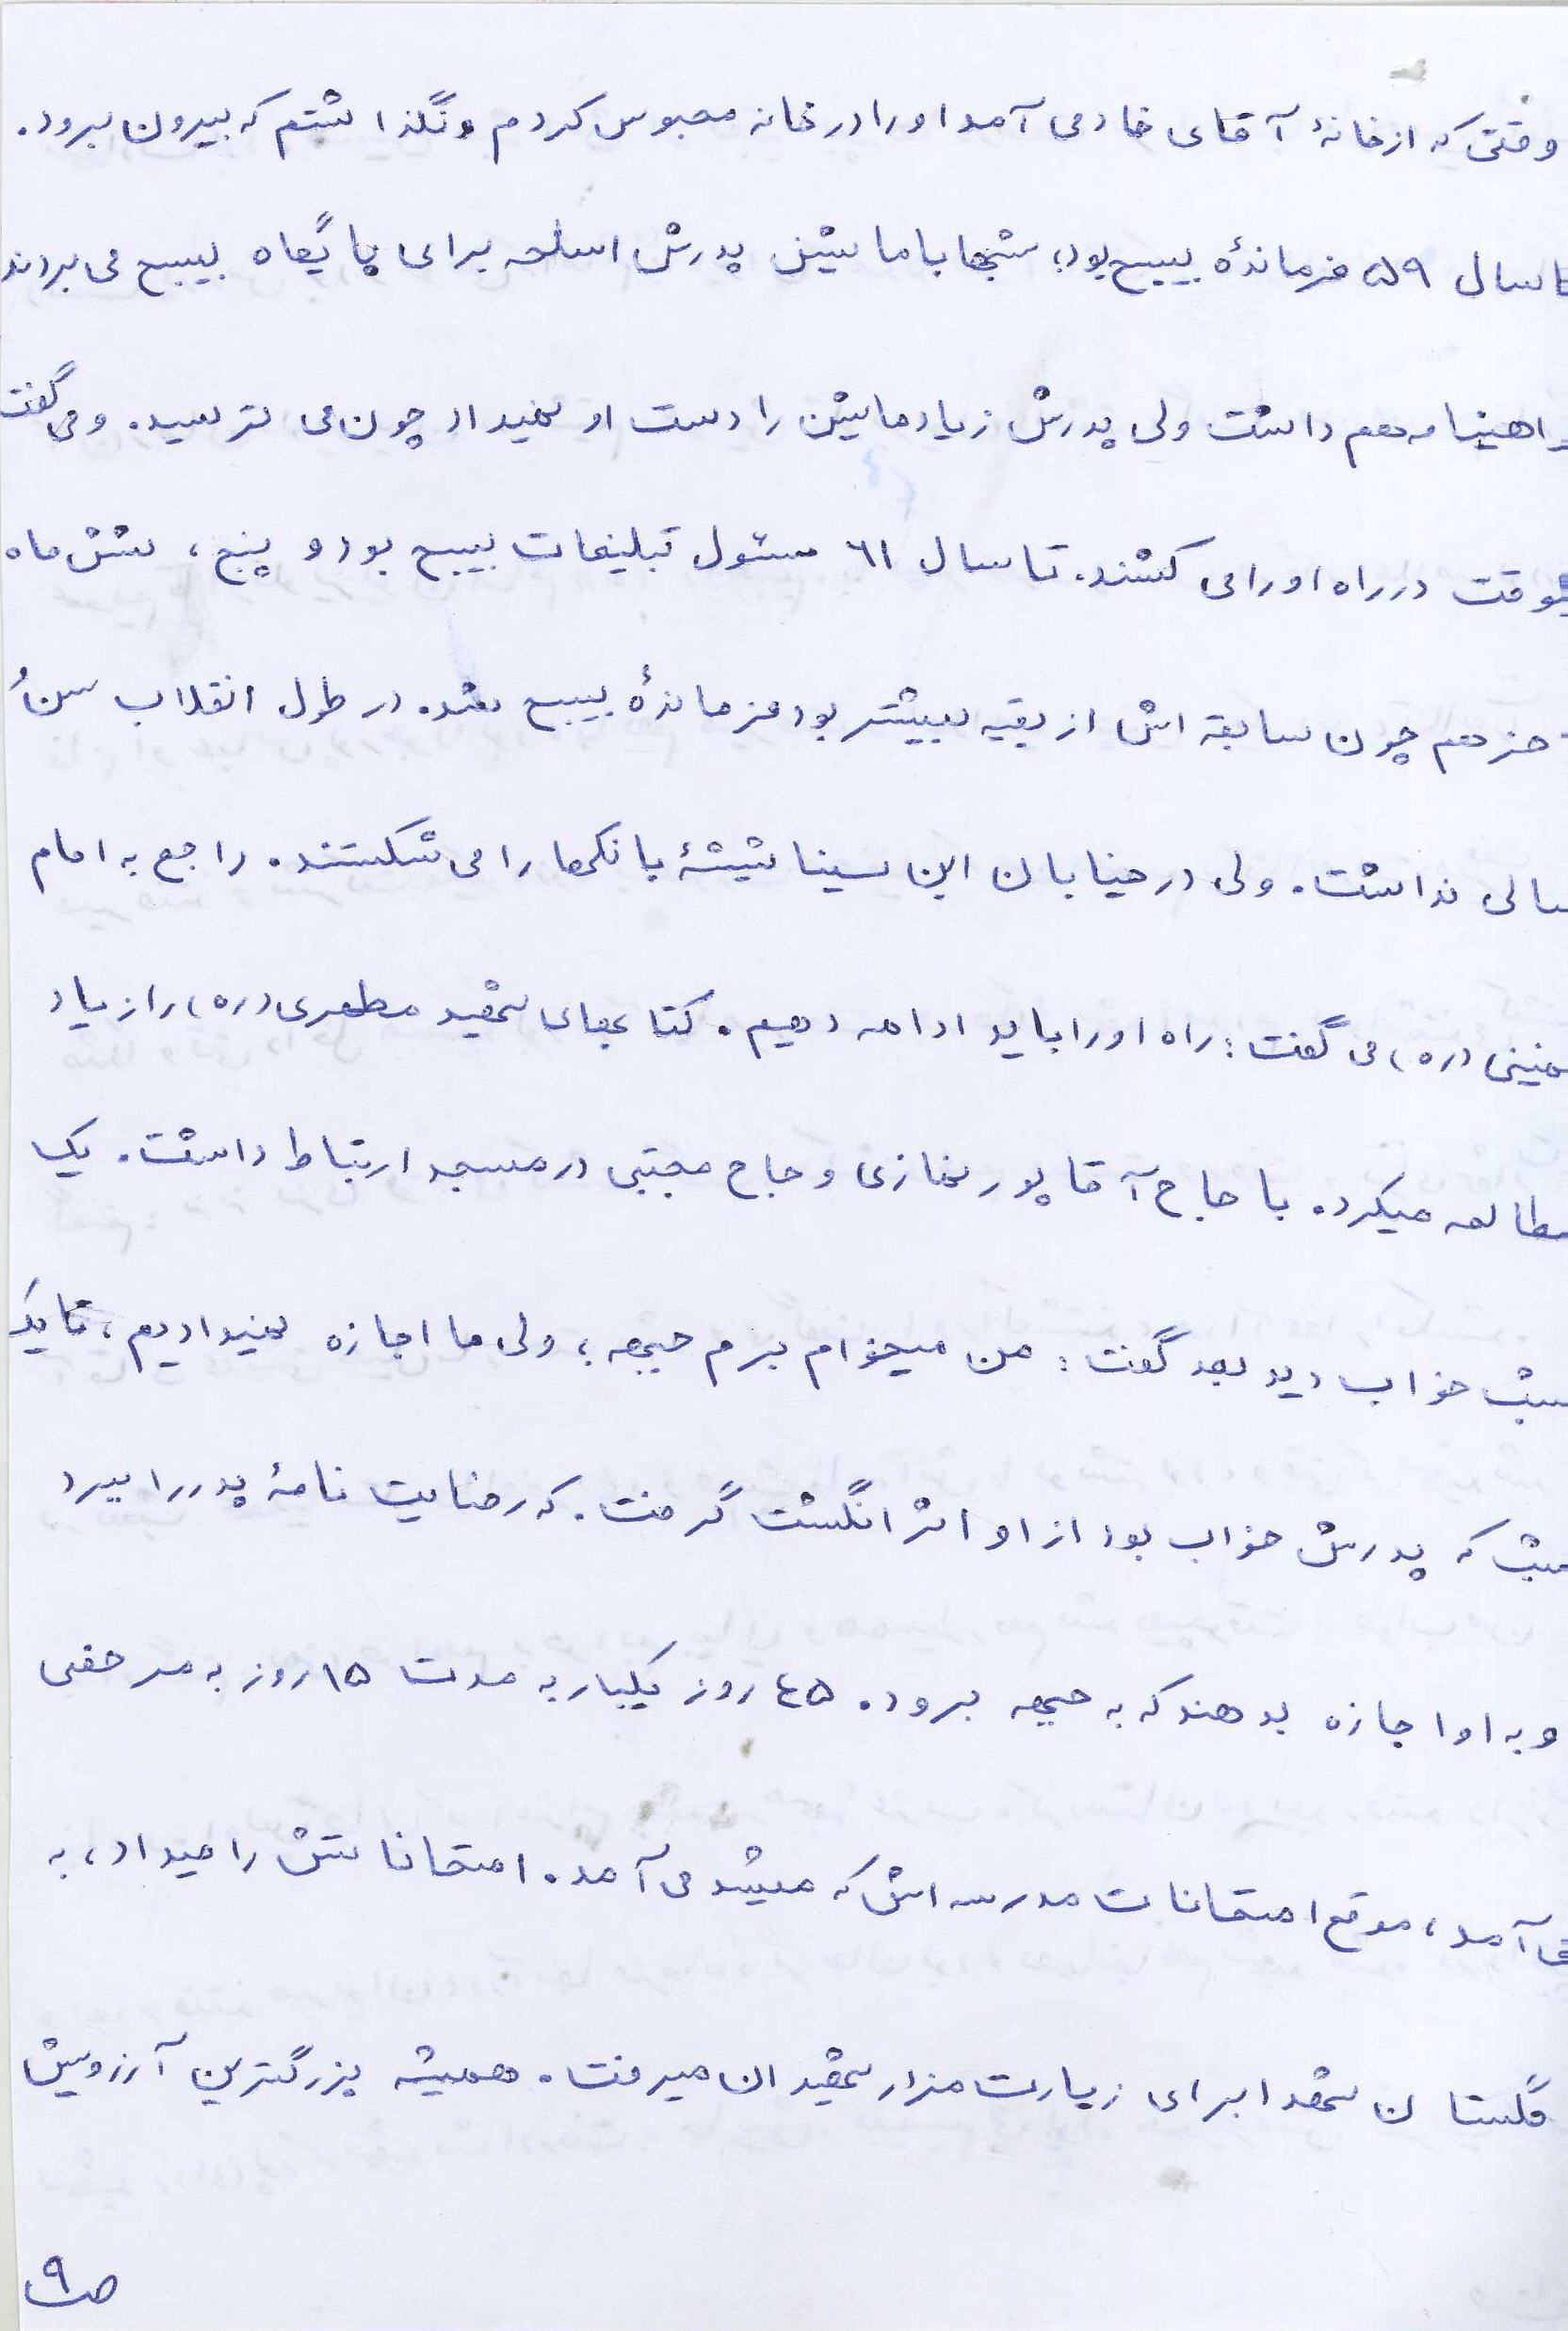 وقتی که از خانهٔ آقای خادمی آمد او را در خانه محبوس کردم و نگذاشتم که بیرون برود.
تا سال ۵۹ فرماندهٔ بسیج بود؛ شبها با ماشین پدرش اسلحه برای پایگاه بسیج می بردند
راهینامه هم داشت ولی پدرش زیاد ماشین را دست او نمیداد چون می ترسید. و می گفت
یوقت در راه او را می کشند. تا سال ۶۱ مسئول تبلیغات بسیج بود و پنج، شش ماه
آخر هم چون سابقه اش از بقیه بیشتر بود فرماندهٔ بسیج شد. در طول انقلاب سن
سالی نداشت. ولی در خیابان ابن سینا شیشهٔ بانکها را می شکستند. راجع به امام
خمینی (ره) می گفت: راه او را باید ادامه دهیم. کتابهای شهید مطهری (ره) را زیاد
مطالعه میکرد. با حاج آقا پورنمازی و حاج مجتبی در مسجد ارتباط داشت. یک
شب خواب دید بعد گفت: من میخوام برم جبهه؛ ولی ما اجازه نمیدادیم، تا یک
شب که پدرش خواب بود از او اثر انگشت گرفت. که رضایت نامهٔ پدر را ببرد
و به او اجازه بدهند که به جبهه برود. ۴۵ روز یکبار به مدت ۱۵ روز به مرخصی
می آمد، موقع امتحانات مدرسه اش که میشد می آمد. امتحاناتش را میداد، به
گلستان شهدا برای زیارت مزار شهیدان میرفت. همیشه بزرگترین آرزویش
ص۹